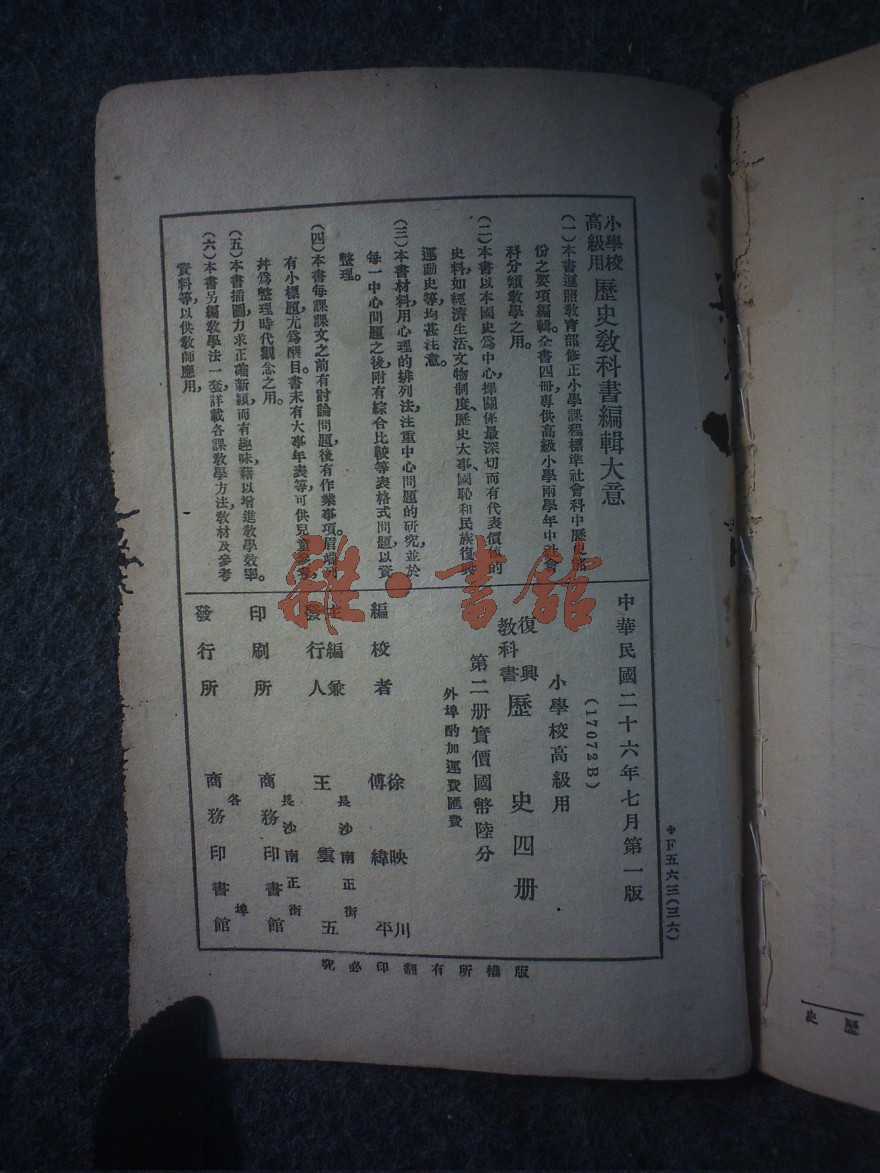 小學校高級用 歷史教科書編輯大意
(一)本書遵照教育部修正小學課程標準社會科中歷史部
份之要項編輯。全書四冊,專供高級小學兩學年中社會
科分類教學之用。
(二)本書以本國史爲中心,擇關係最深切而有代表價值的
史料,如經濟生活、文物制度、歷史大事、國恥和民族復興
運動史等,均甚注意。
(三)本書材料用心理的排列法,注重中心問題的研究,並於
每一中心問題之後,附有綜合比較等表格式問題,以資
整理。
(四)本書每課課文之前有討論問題,後有作業事項,眉端列
有小標題,尤爲醒目。書末有大事年表等,可供兒童參考
幷爲整理時代觀念之用。
(五)本書插圖力求正確新穎而有趣味,藉以增進教學效率。
(六)本書另編教學法一套,詳載各課教學方法,教材及參考
資料等,以供教師應用。
中華民國二十六年七月第一版
(17072B)
小學校高級用
復興教科書 歷史四册
第二册實價國幣陸分
外埠酌加運費匯費
編校者 徐映川 傅緯平
主編兼發行人 王雲五 長沙南正街
印刷所 商務印書館 長沙南正街
發行所 商務印書館 各埠
版權所有翻印必究
*F五六三(三六)
歷史
雜·書館